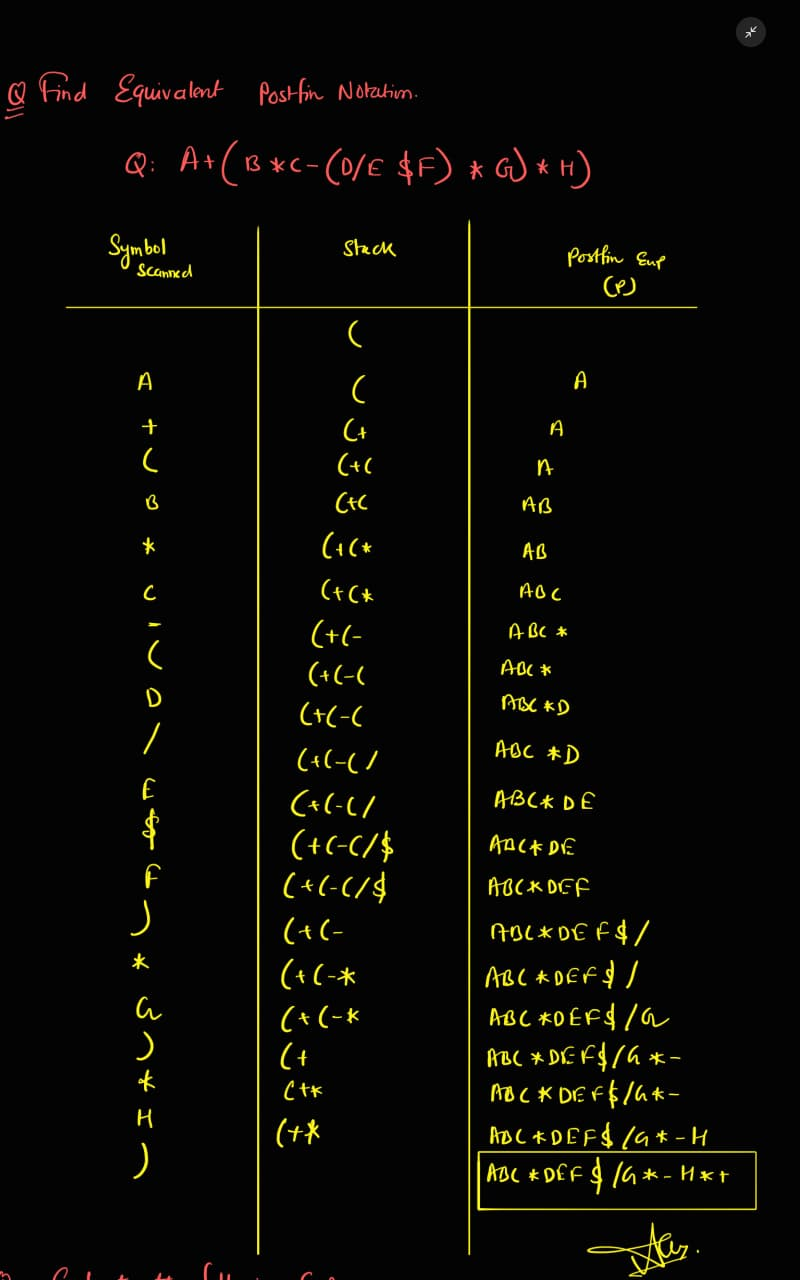 Q Find Equivalent Postfin Notation.
Q: A+(B*C-(D/E $F) * G) * H)
Symbol Scanned Stack Postfin Exp (P)
(
A ( A
+ (+ A
( (+( A
B (+( AB
* (+(* AB
C (+(* ABC
- (+(- ABC*
( (+(-( ABC*
D (+(-( ABC*D
/ (+(-(/ ABC*D
E (+(-(/ ABC*DE
$ (+(-(/$ ABC*DE
F (+(-(/$ ABC*DEF
) (+(- ABC*DEF$/
* (+(-* ABC*DEF$/
G (+(-* ABC*DEF$/G
) (+ ABC*DEF$/G*-
* (+* ABC*DEF$/G*-
H (+* ABC*DEF$/G*-H
) ABC*DEF$/G*-H*+